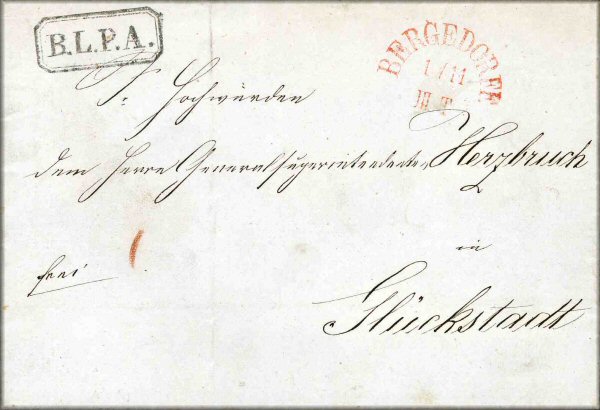 B.L.P.A.
BERGEDORF
1/11
III T
Sr Hochwürden
dem Herrn Generalsuperintendenten Herzbruch
in
frei
Glückstadt